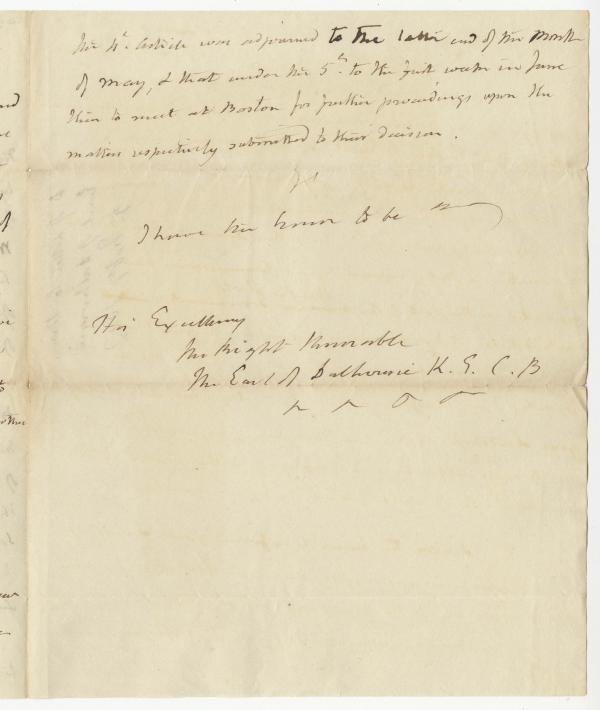 the 4th. Article was adjourned to the latter end of the Month
of May, & that under the 5th. to the first week in June
then to meet at Boston for further proceedings upon the
matters respectively submitted to their decision.
I have the honor to be
His Excellency
The Right Honorable
The Earl of Dalhousie K. G. C. B